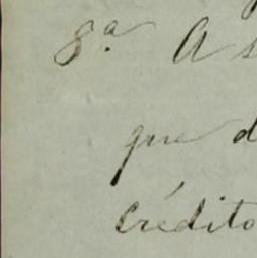 8.ª A
que
crédito